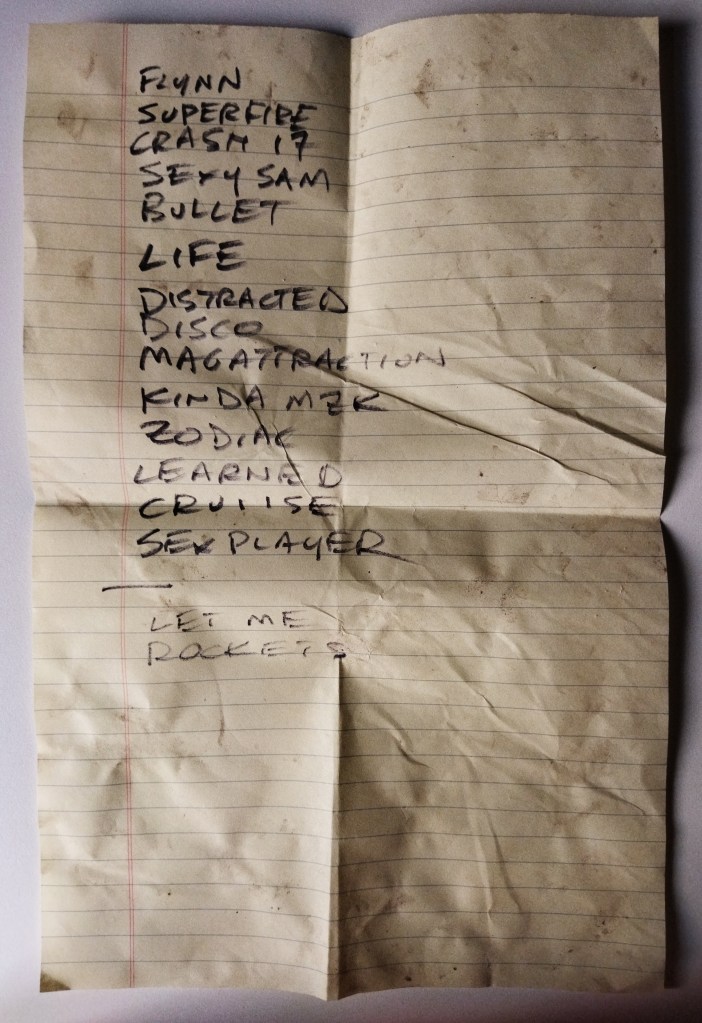 FLYNN
SUPERFIRE
CRASH 17
SEXY SAM
BULLET
LIFE
DISTRACTED
DISCO
MAGATTRACTION
KINDA MZK
ZODIAC
LEARNED
CRUIISE
SEX PLAYER
LET ME
ROCKETS